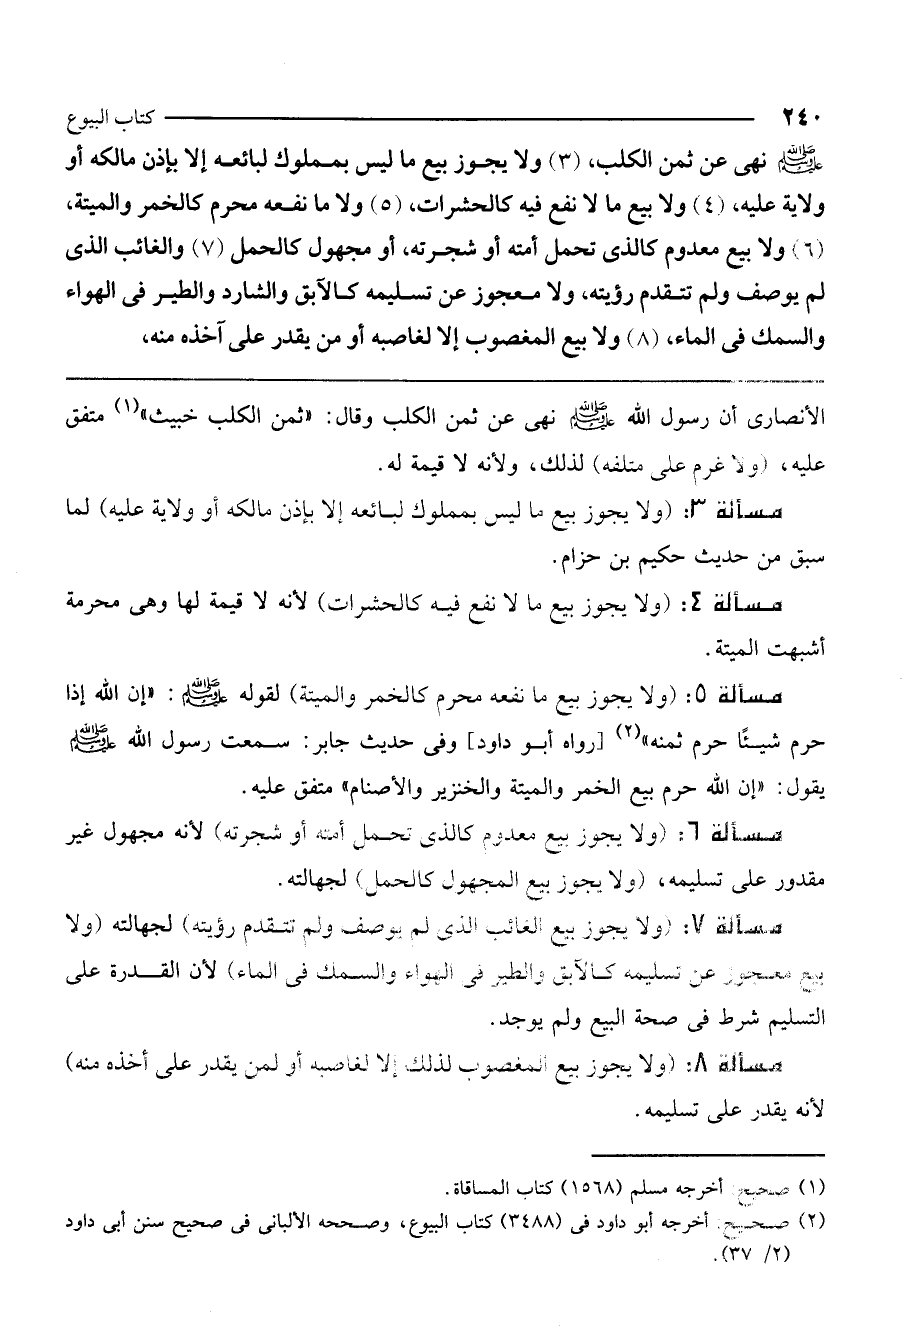 ٢٤٠ كتاب البيوع
ﷺ نهى عن ثمن الكلب، (٣) ولا يجوز بيع ما ليس بمملوك لبائعه إلا بإذن مالكه أو
ولاية عليه، (٤) ولا بيع ما لا نفع فيه كالحشرات، (٥) ولا ما نفعه محرم كالخمر والميتة،
(٦) ولا بيع معدوم كالذى تحمل أمته أو شجرته، أو مجهول كالحمل (٧) والغائب الذى
لم يوصف ولم تتقدم رؤيته، ولا معجوز عن تسليمه كالآبق والشارد والطير فى الهواء
والسمك فى الماء، (٨) ولا بيع المغصوب إلا لغاصبه أو من يقدر على آخذه منه،
الأنصارى أن رسول الله ﷺ نهى عن ثمن الكلب وقال: «ثمن الكلب خبيث»(١) متفق
عليه، (ولا غرم على متلفه) لذلك، ولأنه لا قيمة له.
مسألة ٣: (ولا يجوز بيع ما ليس بمملوك لبائعه إلا بإذن مالكه أو ولاية عليه) لما
سبق من حديث حكيم بن حزام.
مسألة ٤: (ولا يجوز بيع ما لا نفع فيه كالحشرات) لأنه لا قيمة لها وهى محرمة
أشبهت الميتة.
مسألة ٥: (ولا يجوز بيع ما نفعه محرم كالخمر والميتة) لقوله ﷺ: «إن الله إذا
حرم شيئًا حرم ثمنه»(٢) [رواه أبو داود] وفى حديث جابر: سمعت رسول الله ﷺ
يقول: «إن الله حرم بيع الخمر والميتة والخنزير والأصنام» متفق عليه.
مسألة ٦: (ولا يجوز بيع معدوم كالذى تحمل أمته أو شجرته) لأنه مجهول غير
مقدور على تسليمه، (ولا يجوز بيع المجهول كالحمل) لجهالته.
مسألة ٧: (ولا يجوز بيع الغائب الذى لم يوصف ولم تتقدم رؤيته) لجهالته (ولا
بيع معجوز عن تسليمه كالآبق والطير فى الهواء والسمك فى الماء) لأن القدرة على
التسليم شرط فى صحة البيع ولم يوجد.
مسألة ٨: (ولا يجوز بيع المغصوب لذلك إلا لغاصبه أو لمن يقدر على أخذه منه)
لأنه يقدر على تسليمه.
(١) صحيح: أخرجه مسلم (١٥٦٨) كتاب المساقاة.
(٢) صحيح: أخرجه أبو داود فى (٣٤٨٨) كتاب البيوع، وصححه الألبانى فى صحيح سنن أبى داود
(٢/ ٣٧).